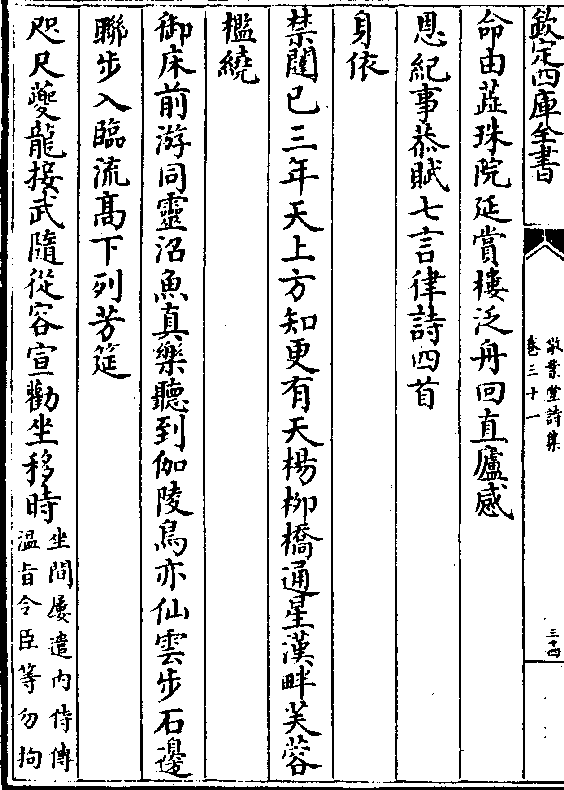 欽定四庫全書
敬業堂詩集
卷三十一
三十四
命由蕋珠院延賞樓泛舟回直廬感
恩紀事恭賦七言律詩四首
身依
禁闥已三年天上方知更有天楊柳橋通星漢畔芙蓉
檻繞
御床前游同靈沼魚真樂聽到伽陵鳥亦仙雲步石邊
聯步入臨流髙下列芳筵
咫尺夔龍接武隨從容宣勸坐移時
坐間屢遣内侍傳
温㫖令臣等勿拘